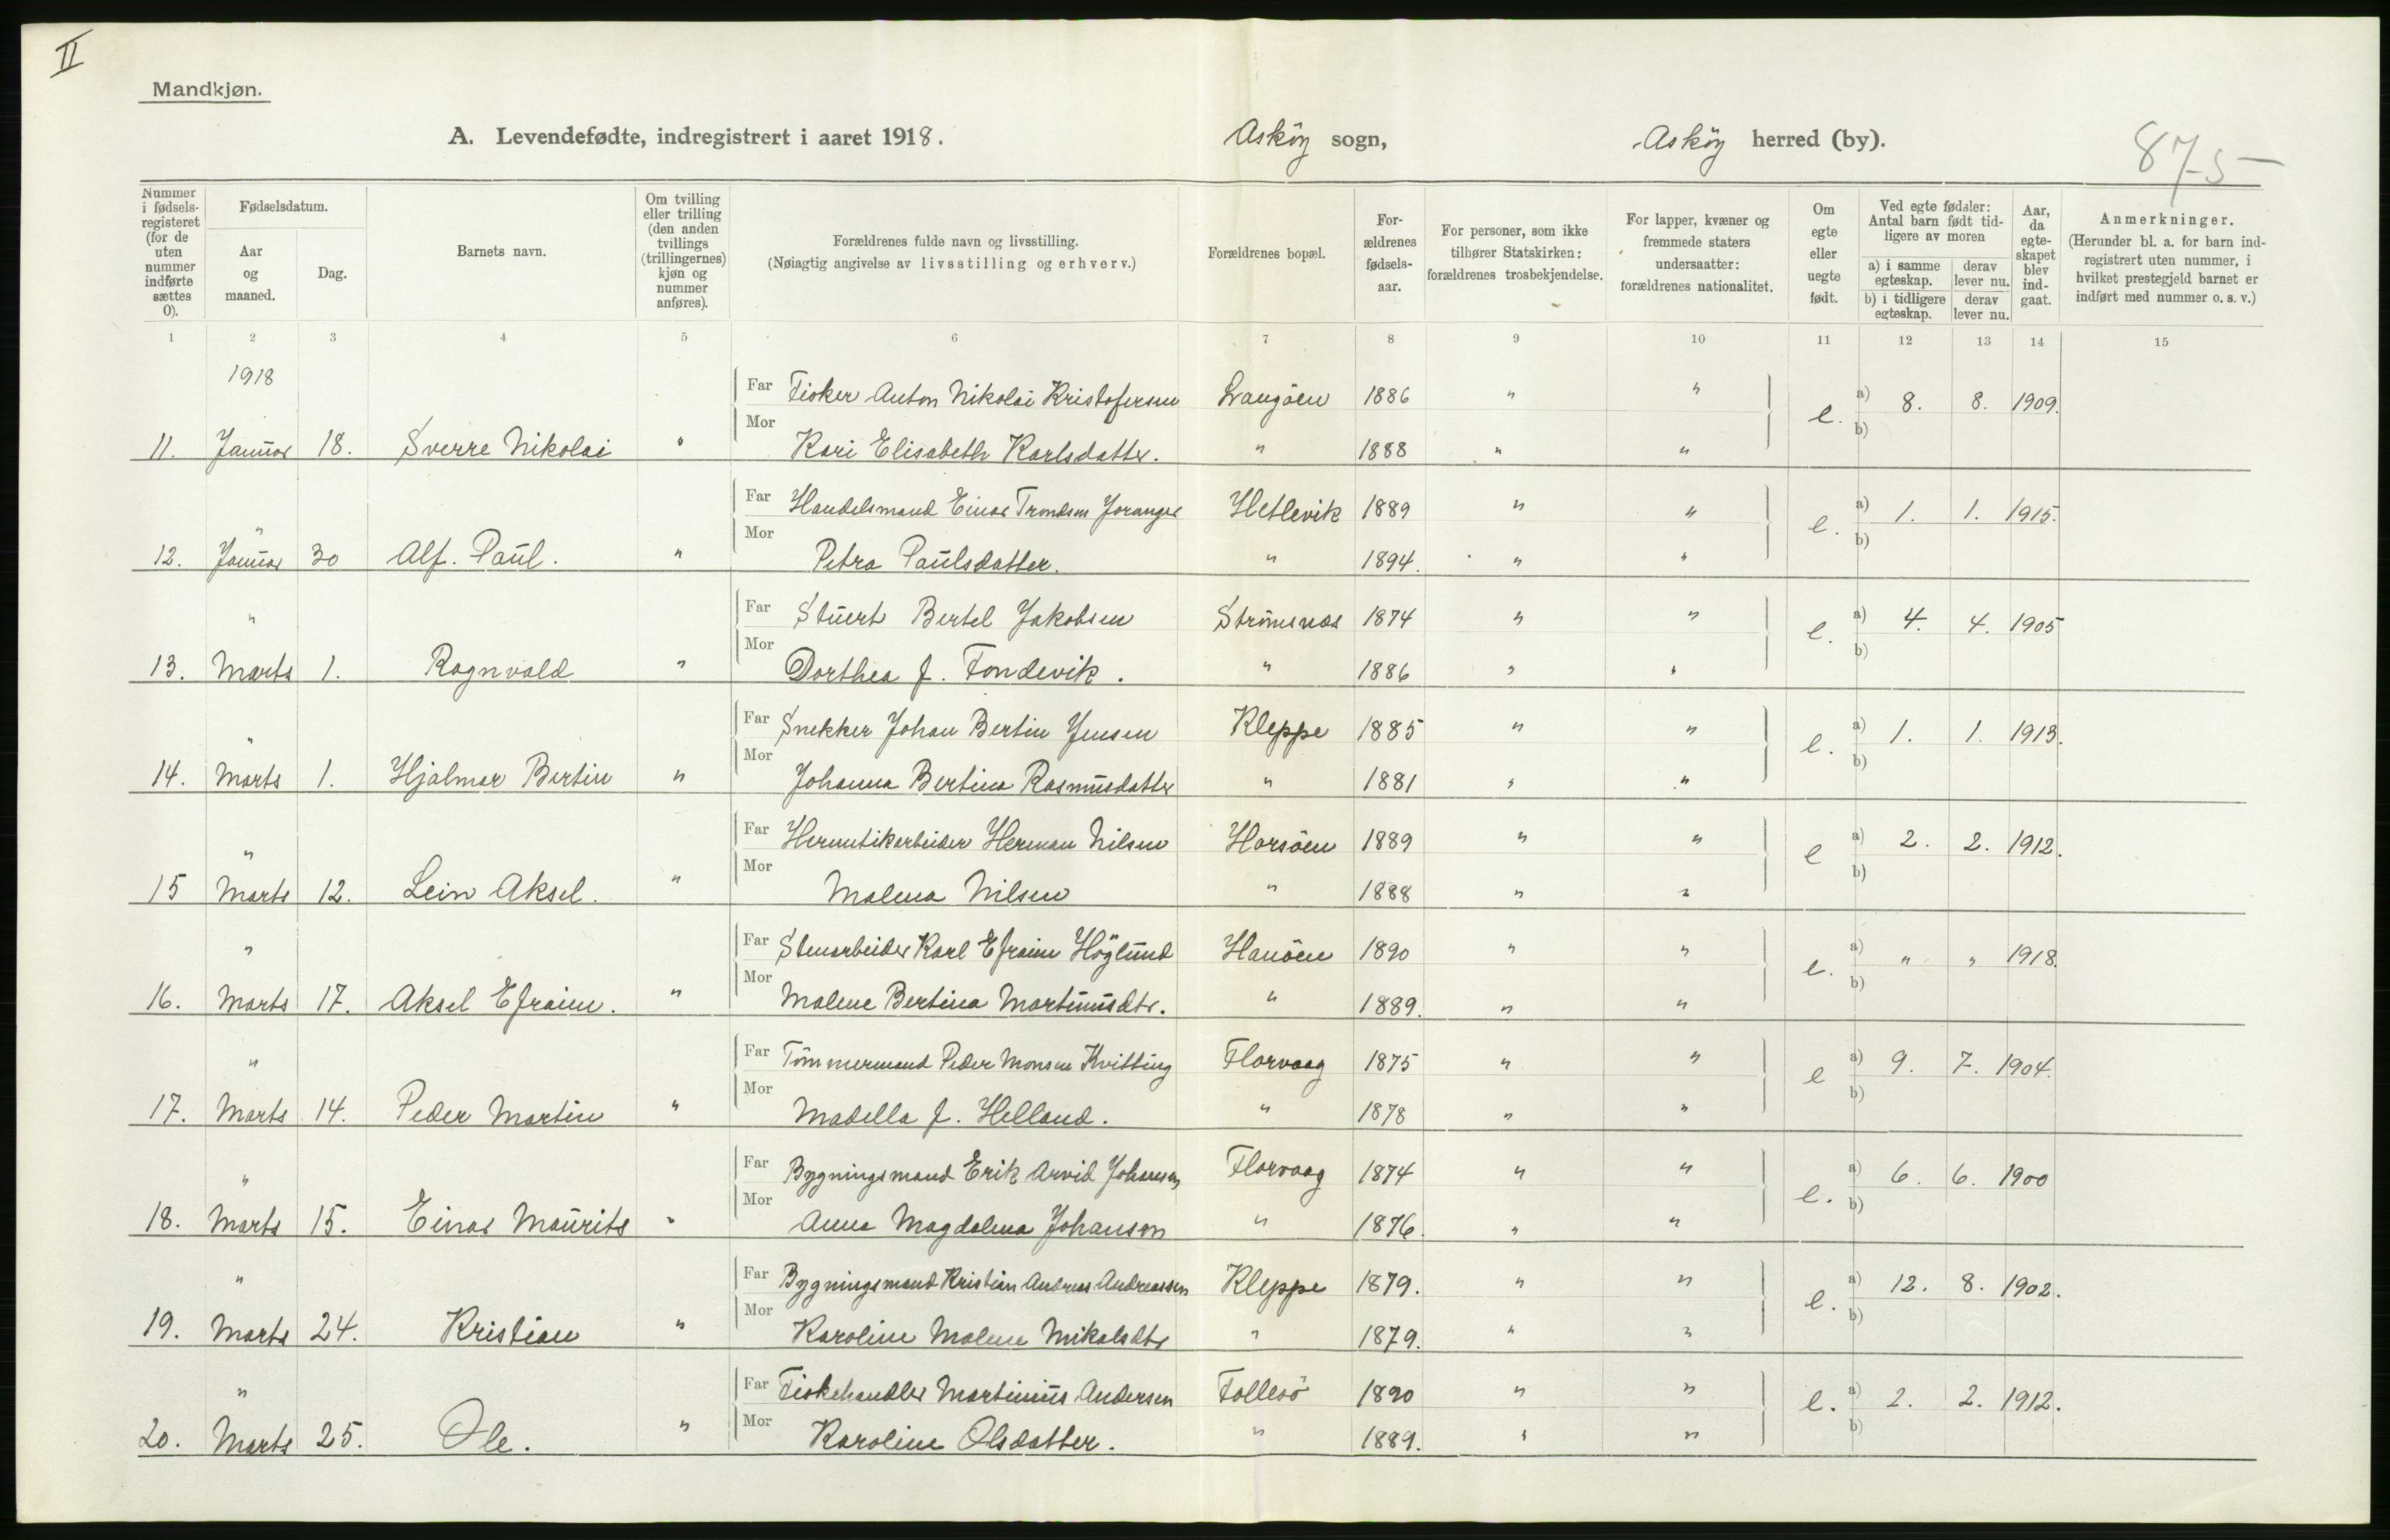 II
Mandkjøn.
A. Levendefødte, indregistrert i aaret 1918. Asköy sogn, Asköy herred (by).
875
Nummer i fødselsregisteret (for de uten nummer indførte sættes 0).
Fødselsdatum.
Aar og maaned.
Dag.
Barnets navn.
Om tvilling eller trilling (den anden tvillings (trillingernes) kjøn og nummer anføres).
Forældrenes fulde navn og livsstilling.
(Nøiagtig angivelse av livsstilling og erhverv.)
Forældrenes bopæl.
Forældrenes fødselsaar.
For personer, som ikke tilhører Statskirken: forældrenes trosbekjendelse.
For lapper, kvæner og fremmede staters undersaatter: forældrenes nationalitet.
Om egte eller uegte født.
Ved egte fødsler: Antal barn født tidligere av moren
a) i samme egteskap. derav lever nu.
b) i tidligere egteskap. derav lever nu.
Aar, da egteskapet blev indgaat.
Anmerkninger.
(Herunder bl. a. for barn indregistrert uten nummer, i hvilket prestegjeld barnet er indført med nummer o. s. v.)
1 2 3 4 5 6 7 8 9 10 11 12 13 14 15
1918
Far Fisker Anton Nikolai Kristofersen 1886 " " e. a) 8. 8. 1909.
11. Januar 18. Sverre Nikolai " Mor Kari Elisabeth Karlsdatter. " 1888 " " b)
" Far Handelsmand Einar Trondsen Joranger Hetlevik 1889 " " e. a) 1. 1. 1915.
12. Januar 30 Alf. Paul. " Mor Petra Paulsdatter. " 1894. " " b)
" Far Stuert Bertel Jakobsen Strömsnes 1874 " " e. a) 4. 4. 1905
13. Marts 1. Ragnvald " Mor Dorthea J. Fondevik. " 1886 " " b)
" Far Snekker Johan Bertin Jensen Kleppe 1885 " " e. a) 1. 1. 1913.
14. Marts 1. Hjalmar Bertin " Mor Johanna Bertina Rasmusdatter " 1881 " " b)
" Far Hermetikarbeider Herman Nilsen Horsöen 1889 " " e a) 2. 2. 1912.
15 Marts 12. Lein Aksel. " Mor Malena Nilsen " 1888 " " b)
" Far Stenarbeider Karl Efraim Höglund Hanöen 1890 " " e. a) " " 1918.
16. Marts 17. Aksel Efraim. " Mor Malene Bertina Martinusdtr. " 1889. " " b)
" Far Tömmermand Peder Monsen Kvitting Florvaag 1875 " " e a) 9. 7. 1904.
17. Marts 14. Peder Martin " Mor Madella J. Helland. " 1878 " " b)
" Far Bygningsmand Erik Arvid Johansen Florvaag 1874 " " e. a) 6. 6. 1900
18. Marts 15. Einar Maurits " Mor Anna Magdalena Johanson " 1876. " " b)
" Far Bygningsmand Kristian Andreas Andreassen Kleppe 1879. " " e. a) 12. 8. 1902.
19. Marts 24. Kristian " Mor Karoline Malene Mikalsdtr " 1879. " " b)
" Far Fiskehandler Martinius Andersen Follesö 1890 " " e. a) 2. 2. 1912.
20. Marts 25. Ole. " Mor Karoline Olsdatter. " 1889. " " b)